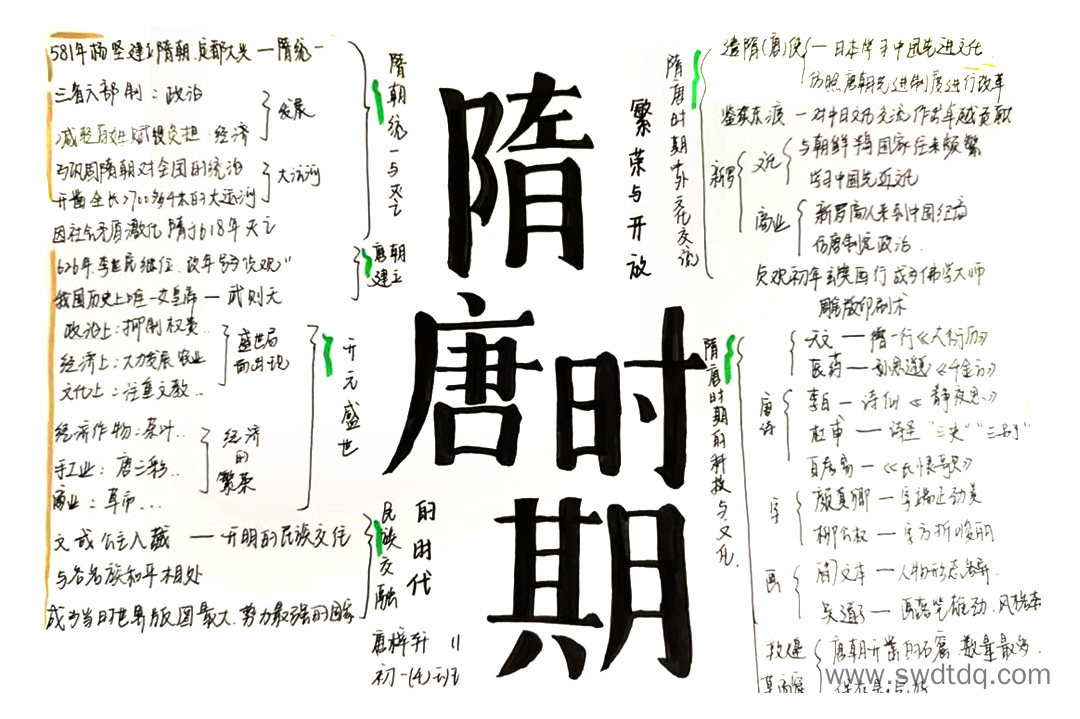 隋唐时期
繁荣与开放
的时代
唐梓升 11
初一(4)班
隋朝统一与灭亡
581年杨坚建立隋朝.定都大兴 — 隋统一
三省六部制：政治
减轻百姓赋役负担：经济
发展
巩固隋朝对全国的统治
开凿全长2700多千米的大运河
大运河
因社会矛盾激化 隋于618年灭亡
唐朝建立
626年.李世民继位.改年号"贞观"
我国历史上唯一女皇帝 — 武则天
开元盛世
政治上：抑制权贵..
经济上：大力发展农业
文化上：注重文教..
盛世局面出现
经济作物：茶叶..
手工业：唐三彩..
商业：草市....
经济的繁荣
民族交融
文成公主入藏 — 开明的民族交往
与各民族和平相处
成为当时世界版图最大.势力最强的国家
隋唐时期中外文化交流
遣隋(唐)使 — 日本学习中国先进文化
仿照唐朝先进制度进行改革
鉴真东渡 — 对中日文化交流作出卓越贡献
新罗
文化
与朝鲜 国家往来频繁
学习中国先进文化
商业
新罗商人来到中国经商
仿唐制定政治.
贞观初年玄奘西行 成为佛学大师
隋唐时期的科技与文化.
雕版印刷术
天文 — 僧一行《大衍历》
医药 — 孙思邈《千金方》
唐诗
李白 — 诗仙《静夜思》
杜甫 — 诗圣 "三吏""三别"
白居易 — 《长恨歌》
字
颜真卿 — 字端正劲美
柳公权 — 字方折峻丽
画
阎文本 — 人物形态
吴道子 — 画落笔雄劲.风格奔
敦煌
莫高窟
唐朝开凿的石窟 数量最多.
www.swdtdq.com